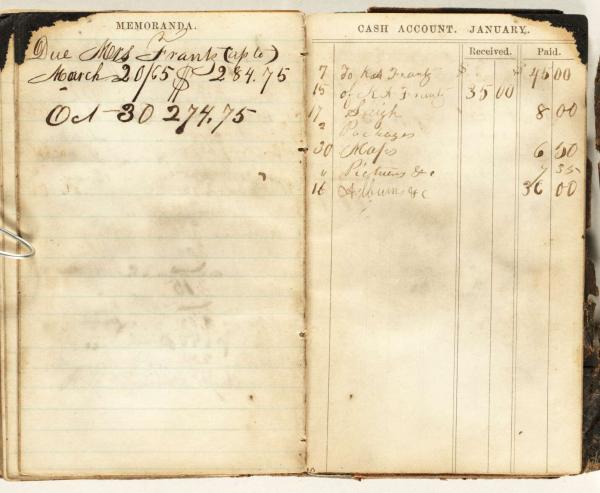 MEMORANDA.
Due Mrs Frantz (up to)
March 20/65 $ 284.75
Oct 30 274.75
CASH ACCOUNT. JANUARY.
Received. Paid.
7 To Frantz $ $ 45 00
15 of Frantz 35 00
17 Sleigh 8 00
" Packages
30 Maps 6 50
" Pictures &c 7 35
16 Albums &c 36 00